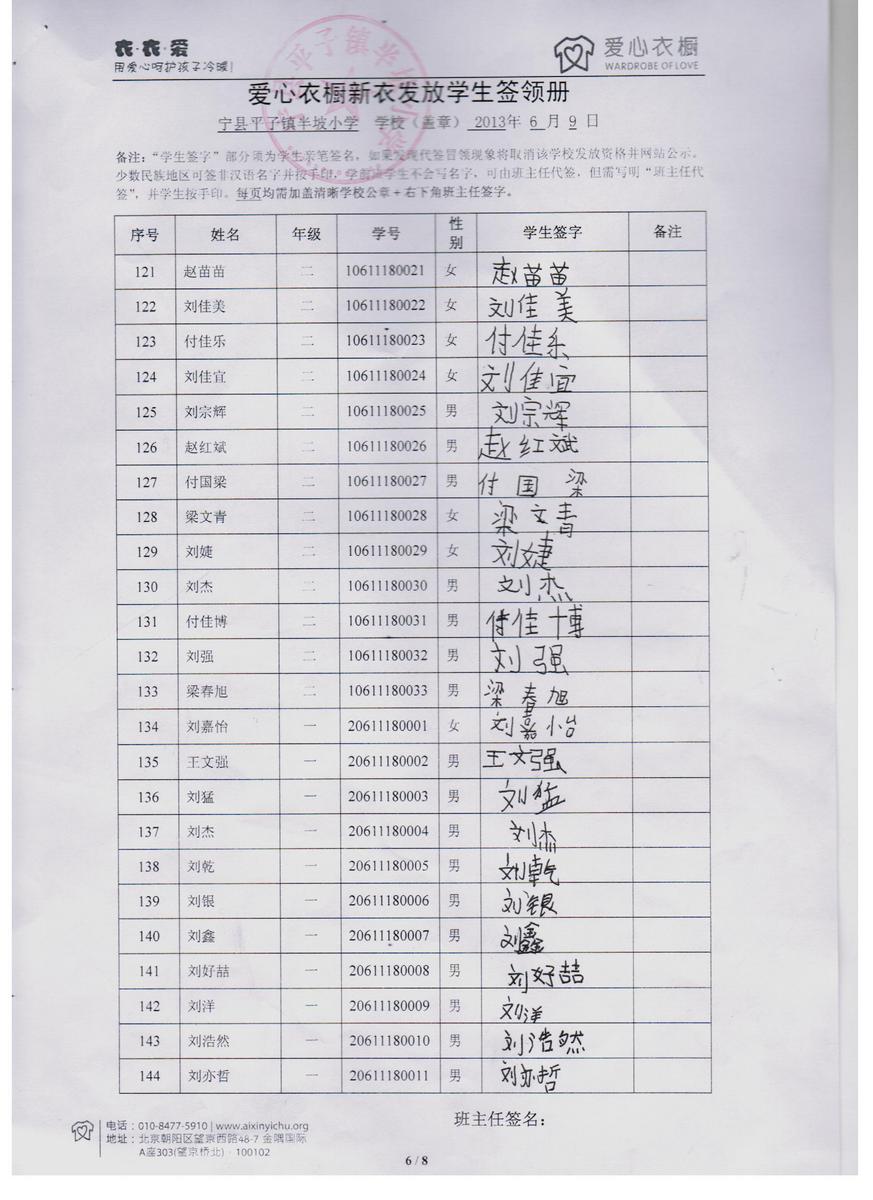 衣·衣·爱
用爱心呵护孩子冷暖!
爱心衣橱
WARDROBE OF LOVE
爱心衣橱新衣发放学生签领册
宁县平子镇半坡小学 学校（盖章） 2013年 6 月 9 日
备注：“学生签字”部分须为学生亲笔签名，如果发现代签冒领现象将取消该学校发放资格并网站公示。
少数民族地区可签非汉语名字并按手印。学前班学生不会写名字，可由班主任代签，但需写明“班主任代
签”，并学生按手印。每页均需加盖清晰学校公章+右下角班主任签字。
序号 姓名 年级 学号 性别 学生签字 备注
121 赵苗苗 二 10611180021 女 赵苗苗
122 刘佳美 二 10611180022 女 刘佳美
123 付佳乐 二 10611180023 女 付佳乐
124 刘佳宜 二 10611180024 女 刘佳宜
125 刘宗辉 二 10611180025 男 刘宗辉
126 赵红斌 二 10611180026 男 赵红斌
127 付国梁 二 10611180027 男 付国梁
128 梁文青 二 10611180028 女 梁文青
129 刘婕 二 10611180029 女 刘婕
130 刘杰 二 10611180030 男 刘杰
131 付佳博 二 10611180031 男 付佳博
132 刘强 二 10611180032 男 刘强
133 梁春旭 二 10611180033 男 梁春旭
134 刘嘉怡 一 20611180001 女 刘嘉怡
135 王文强 一 20611180002 男 王文强
136 刘猛 一 20611180003 男 刘猛
137 刘杰 一 20611180004 男 刘杰
138 刘乾 一 20611180005 男 刘乾
139 刘银 一 20611180006 男 刘银
140 刘鑫 一 20611180007 男 刘鑫
141 刘好喆 一 20611180008 男 刘好喆
142 刘洋 一 20611180009 男 刘洋
143 刘浩然 一 20611180010 男 刘浩然
144 刘亦哲 一 20611180011 男 刘亦哲
班主任签名：
电话：010-8477-5910 | www.aixinyichu.org
地址：北京朝阳区望京西路48-7 金隅国际
A座303(望京桥北)·100102
6 / 8